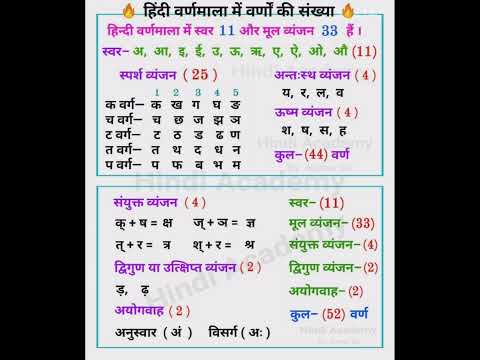 🔥 हिंदी वर्णमाला में वर्णों की संख्या 🔥
हिन्दी वर्णमाला में स्वर 11 और मूल व्यंजन 33 हैं ।
स्वर– अ, आ, इ, ई, उ, ऊ, ऋ, ए, ऐ, ओ, औ (11)
स्पर्श व्यंजन ( 25 )
1 2 3 4 5
क वर्ग– क ख ग घ ङ
च वर्ग– च छ ज झ ञ
ट वर्ग– ट ठ ड ढ ण
त वर्ग– त थ द ध न
प वर्ग– प फ ब भ म
अन्तःस्थ व्यंजन ( 4 )
य, र, ल, व
ऊष्म व्यंजन ( 4 )
श, ष, स, ह
कुल–(44) वर्ण
Hindi Academy
Hindi Academy
संयुक्त व्यंजन ( 4 )
क् + ष = क्ष ज् + ञ = ज्ञ
त् + र = त्र श् + र = श्र
द्विगुण या उत्क्षिप्त व्यंजन ( 2 )
ड़, ढ़
अयोगवाह ( 2 )
अनुस्वार ( अं ) विसर्ग ( अः )
स्वर–(11)
मूल व्यंजन–(33)
संयुक्त व्यंजन–(4)
द्विगुण व्यंजन–(2)
अयोगवाह–(2)
कुल– (52) वर्ण
Hindi Academy
Hindi Academy